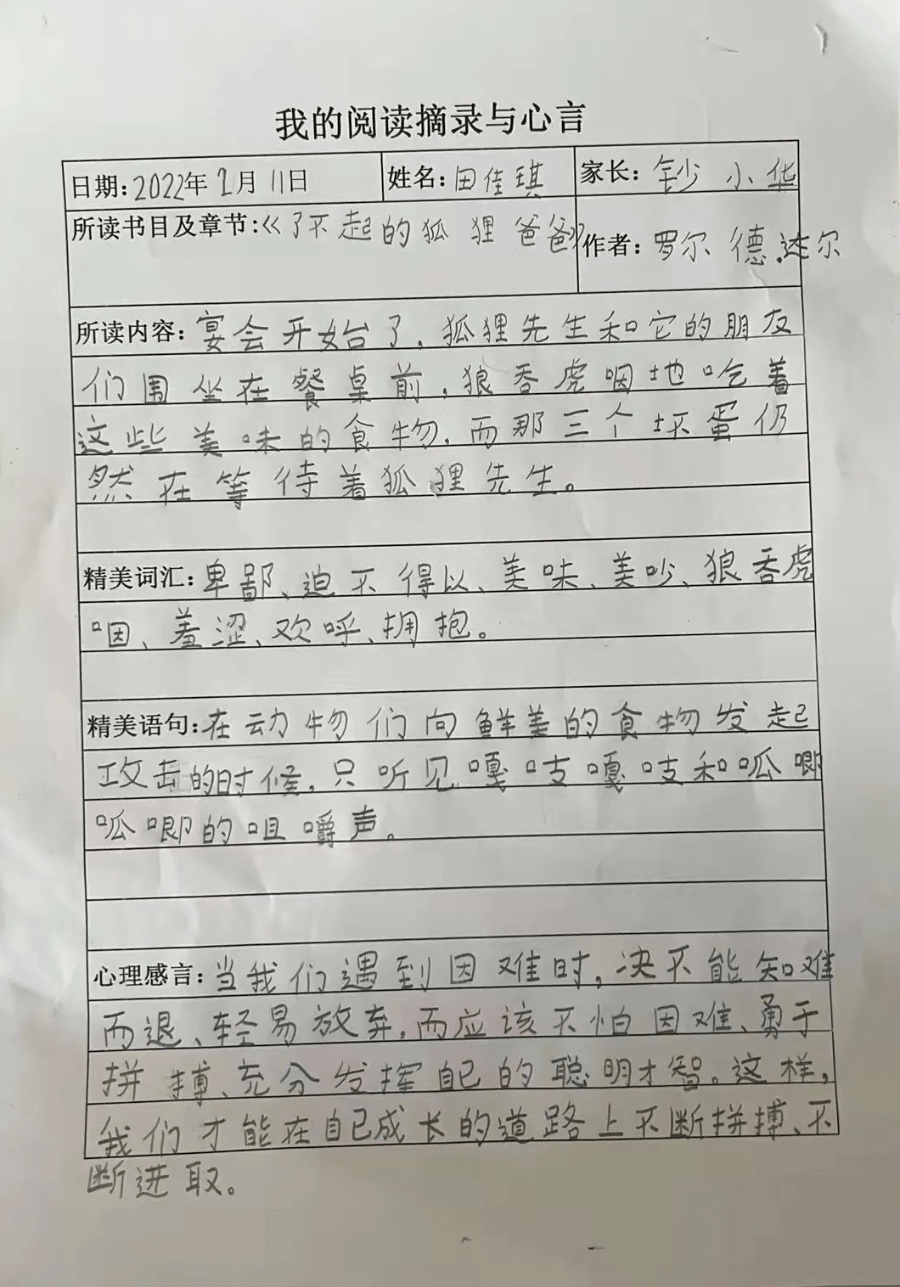 我的阅读摘录与心言
日期:2022年2月11日 姓名:田佳琪 家长:钞小华
所读书目及章节:《了不起的狐狸爸爸》 作者:罗尔德.达尔
所读内容:宴会开始了,狐狸先生和它的朋友
们围坐在餐桌前,狼吞虎咽地吃着
这些美味的食物,而那三个坏蛋仍
然在等待着狐狸先生。
精美词汇:卑鄙、迫不得以、美味、美吵、狼吞虎
咽、羞涩、欢呼、拥抱。
精美语句:在动物们向鲜美的食物发起
攻击的时候,只听见嘎吱嘎吱和呱唧
呱唧的咀嚼声。
心理感言:当我们遇到困难时,决不能知难
而退、轻易放弃,而应该不怕困难、勇于
拼搏、充分发挥自己的聪明才智。这样,
我们才能在自己成长的道路上不断拼搏、不
断进取。